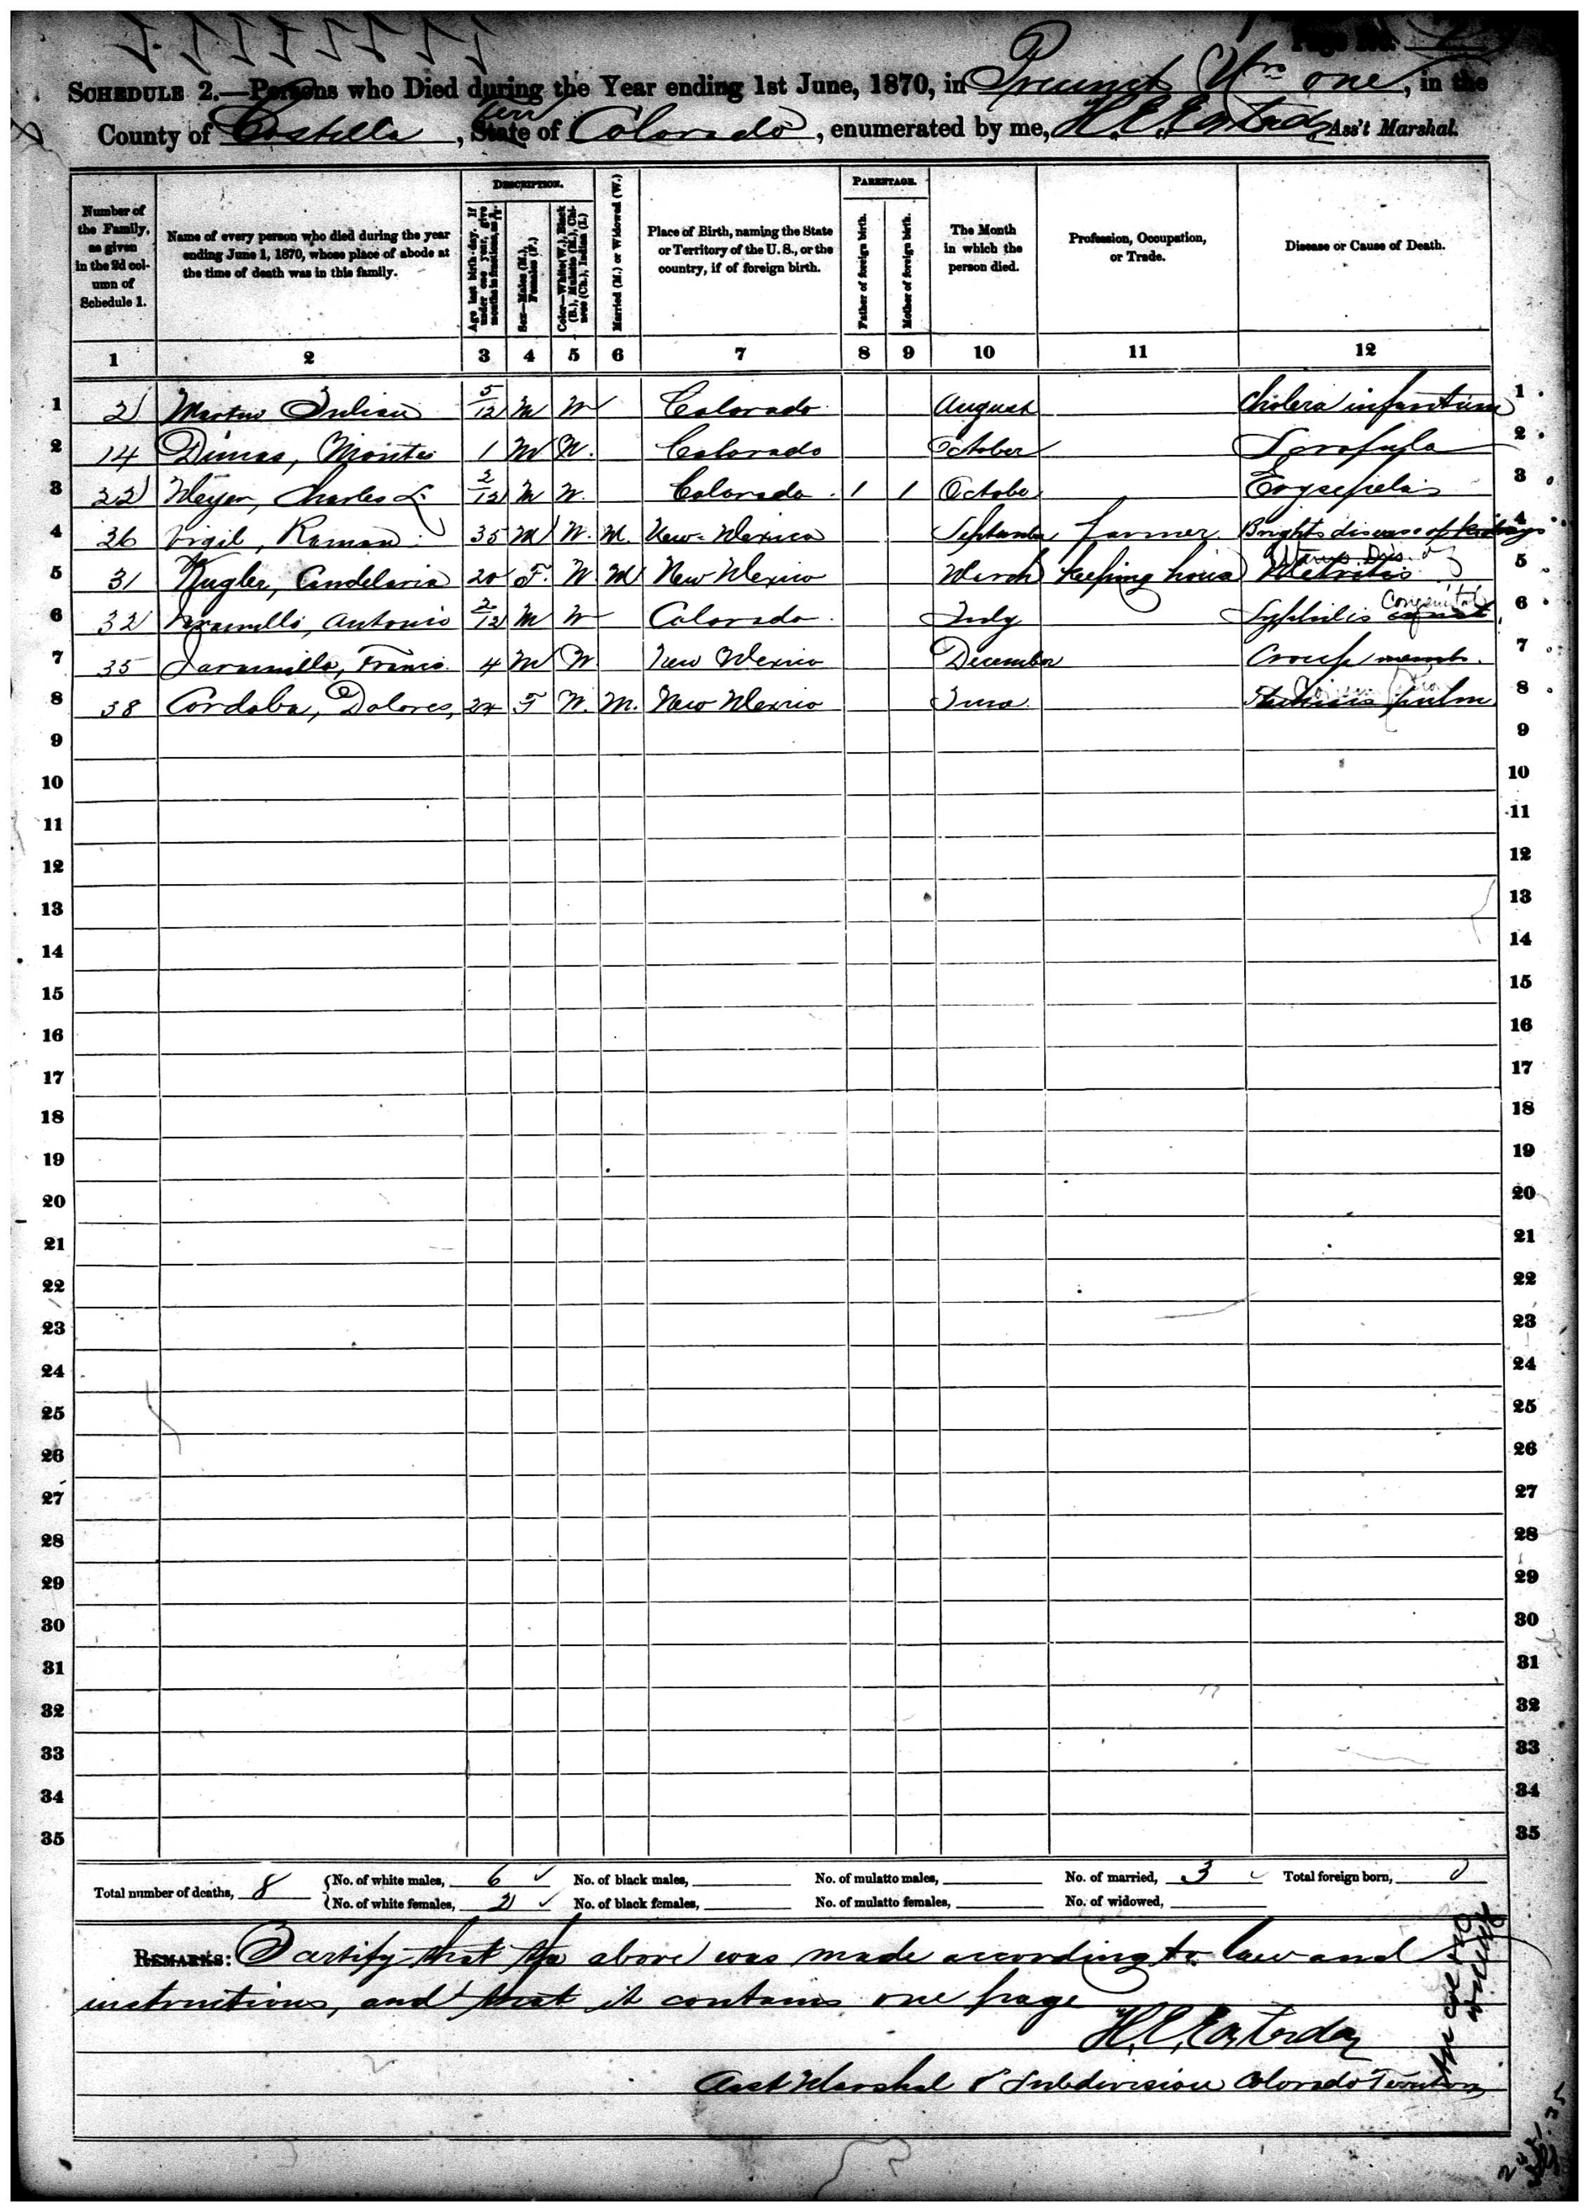 Page No.
SCHEDULE 2.—Persons who Died during the Year ending 1st June, 1870, in Precinct Nro one, in the
County of Costilla, Terr State of Colorado, enumerated by me, H. E. Easterday Ass't Marshal.
Number of the Family, as given in the 2d column of Schedule 1.
Name of every person who died during the year ending June 1, 1870, whose place of abode at the time of death was in this family.
DESCRIPTION.
Age last birth-day. If under one year, give months in fractions, as 3/12.
Sex—Males (M.), Females (F.)
Color—White (W.), Black (B.), Mulatto (M.), Chinese (Ch.), Indian (I.)
Married (M.) or Widowed (W.)
Place of Birth, naming the State or Territory of the U. S., or the country, if of foreign birth.
PARENTAGE.
Father of foreign birth.
Mother of foreign birth.
The Month in which the person died.
Profession, Occupation, or Trade.
Disease or Cause of Death.
1 2 3 4 5 6 7 8 9 10 11 12
1 2 Martin Julian 5/12 M W Colorado August Cholera infantum 1
2 14 Dimas, Montes 1 M W. Colorado October Scrofula 2
3 22 Meyer, Charles L. 2/12 M W. Colorado 1 1 October Erysipelas 3
4 26 Virgil, Raman 35 M W. M. New Mexico September farmer Brights disease of kidneys 4
5 31 Kugler, Candelaria 20 F. W M New Mexico March Keeping house Uterus Dis. of Metritis 5
6 32 Jaramillo, Antonio 2/12 M W Colorado July Syphilis Congenital 6
7 35 Jaramillo, Franco. 4 M W. New Mexico December Croup memb. 7
8 38 Cordoba, Dolores, 24 F W. M. New Mexico June Phthisis pulm 8
9 9
10 10
11 11
12 12
13 13
14 14
15 15
16 16
17 17
18 18
19 19
20 20
21 21
22 22
23 23
24 24
25 25
26 26
27 27
28 28
29 29
30 30
31 31
32 32
33 33
34 34
35 35
Total number of deaths, 8 No. of white males, 6 No. of black males, No. of mulatto males, No. of married, 3 Total foreign born, 0
No. of white females, 2 No. of black females, No. of mulatto females, No. of widowed,
REMARKS: I certify that the above was made according to law and
instructions, and that it contains one page
H. E. Easterday
Asst Marshal 8 Subdivision Colorado Territory